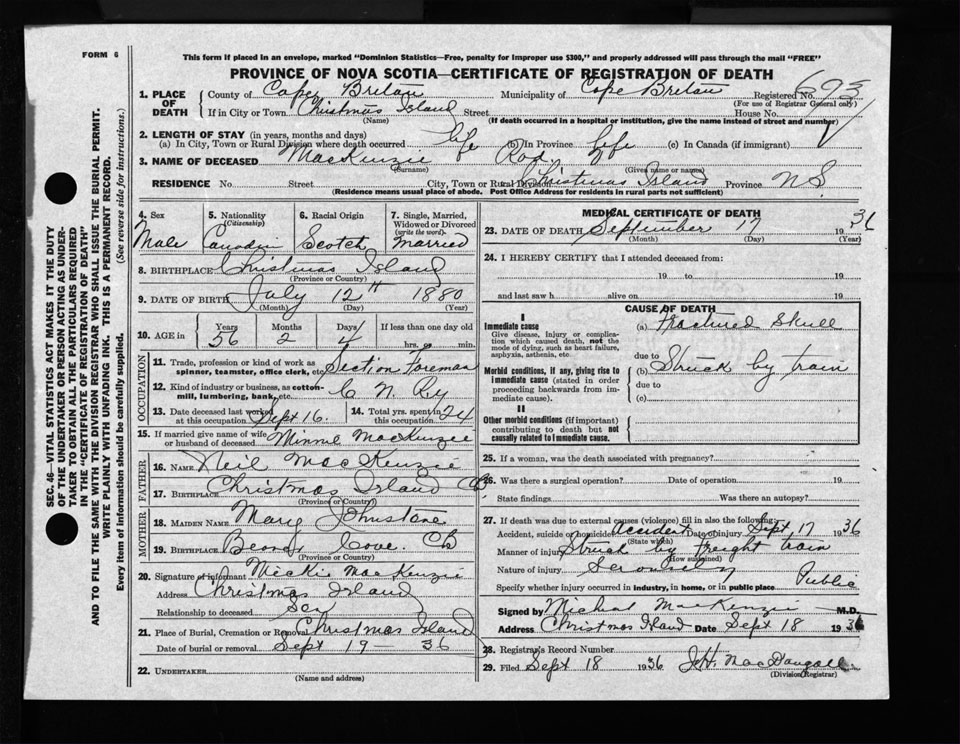 FORM 6
This form if placed in an envelope, marked "Dominion Statistics—Free, penalty for improper use $300," and properly addressed will pass through the mail "FREE"
PROVINCE OF NOVA SCOTIA—CERTIFICATE OF REGISTRATION OF DEATH
1. PLACE OF DEATH
County of Cape Breton Municipality of Cape Breton Registered No. 693
(For use of Registrar General only)
If in City or Town Christmas Island Street House No.
(Name) (If death occurred in a hospital or institution, give the name instead of street and number)
2. LENGTH OF STAY (in years, months and days)
(a) In City, Town or Rural Division where death occurred life (b) In Province Life (c) In Canada (if immigrant)
3. NAME OF DECEASED MacKenzie Rod.
(Surname) (Given name or names)
RESIDENCE No. Street City, Town or Rural Division Christmas Island Province NS
(Residence means usual place of abode. Post Office Address for residents in rural parts not sufficient)
4. Sex Male
5. Nationality (Citizenship) Canadin
6. Racial Origin Scotch
7. Single, Married, Widowed or Divorced (write the word) Married
8. BIRTHPLACE Christmas Island
(Province or Country)
9. DATE OF BIRTH July 12th 1880
(Month) (Day) (Year)
10. AGE in Years 56 Months 2 Days 4 If less than one day old hrs. or min.
OCCUPATION
11. Trade, profession or kind of work as spinner, teamster, office clerk, etc. Section Foreman
12. Kind of industry or business, as cotton-mill, lumbering, bank, etc. C N Ry
13. Date deceased last worked at this occupation Sept 16. 14. Total yrs. spent to 24
15. If married give name of wife or husband of deceased Minnie MacKenzie
FATHER
16. NAME Neil MacKenzie
17. BIRTHPLACE Christmas Island CB
(Province or Country)
MOTHER
18. MAIDEN NAME Mary Johnstone
19. BIRTHPLACE Cove. CB
(Province or Country)
20. Signature of informant MacKenzie
Address Christmas Island
Relationship to deceased Son
21. Place of Burial, Cremation or Removal Christmas Island
Date of burial or removal Sept 19 — 36
22. UNDERTAKER
(Name and address)
MEDICAL CERTIFICATE OF DEATH
23. DATE OF DEATH September 17 1936
(Month) (Day) (Year)
24. I HEREBY CERTIFY that I attended deceased from:
19 to 19
and last saw h alive on 19
CAUSE OF DEATH
I
Immediate cause
Give disease, injury or complication which caused death, not the mode of dying, such as heart failure, asphyxia, asthenia, etc.
(a) Fractured Skull
due to
Morbid conditions, if any, giving rise to immediate cause (stated in order proceeding backwards from immediate cause).
(b) Struck by train
due to
(c)
II
Other morbid conditions (if important) contributing to death but not causally related to immediate cause.
25. If a woman, was the death associated with pregnancy?
26. Was there a surgical operation? Date of operation 19
State findings Was there an autopsy?
27. If death was due to external causes (violence) fill in also the following:
Accident, suicide or homicide accident Date of injury Sept 17 1936
(State which)
Manner of injury Struck by freight train
(How sustained)
Nature of injury
Specify whether injury occurred in industry, in home, or in public place Public
Signed by Michael MacKenzie M.D.
Address Christmas Island Date Sept 18 1936
28. Registrar's Record Number
29. Filed Sept 18 1936 MacDougall
(Division Registrar)
SEC. 46—VITAL STATISTICS ACT MAKES IT THE DUTY
OF THE UNDERTAKER OR PERSON ACTING AS UNDER-
TAKER TO OBTAIN ALL THE PARTICULARS REQUIRED
IN THE "CERTIFICATE OF REGISTRATION OF DEATH"
AND TO FILE THE SAME WITH THE DIVISION REGISTRAR WHO SHALL ISSUE THE BURIAL PERMIT.
WRITE PLAINLY WITH UNFADING INK. THIS IS A PERMANENT RECORD.
Every item of information should be carefully supplied. (See reverse side for instructions.)